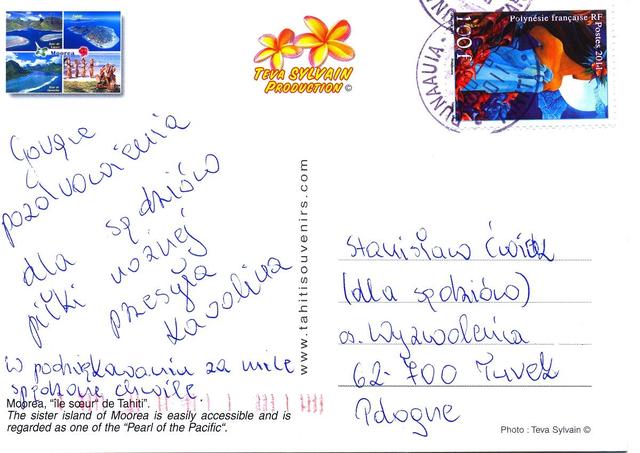 Moorea
TEVA SYLVAIN
PRODUCTION ©
Polynésie française RF
Postes 2011
100 F
PUNAAUIA
Gorące
pozdrowienia
dla sędziów
piłki nożnej
przesyła
Karolina
W podziękowaniu za mile
spędzone chwile.
Moorea, "île sœur" de Tahiti".
The sister island of Moorea is easily accessible and is
regarded as one of the "Pearl of the Pacific".
www.tahitisouvenirs.com
Stanisław
(dla sędziów)
os. Wyzwolenia
62-700 Turek
Pologne
Photo : Teva Sylvain ©